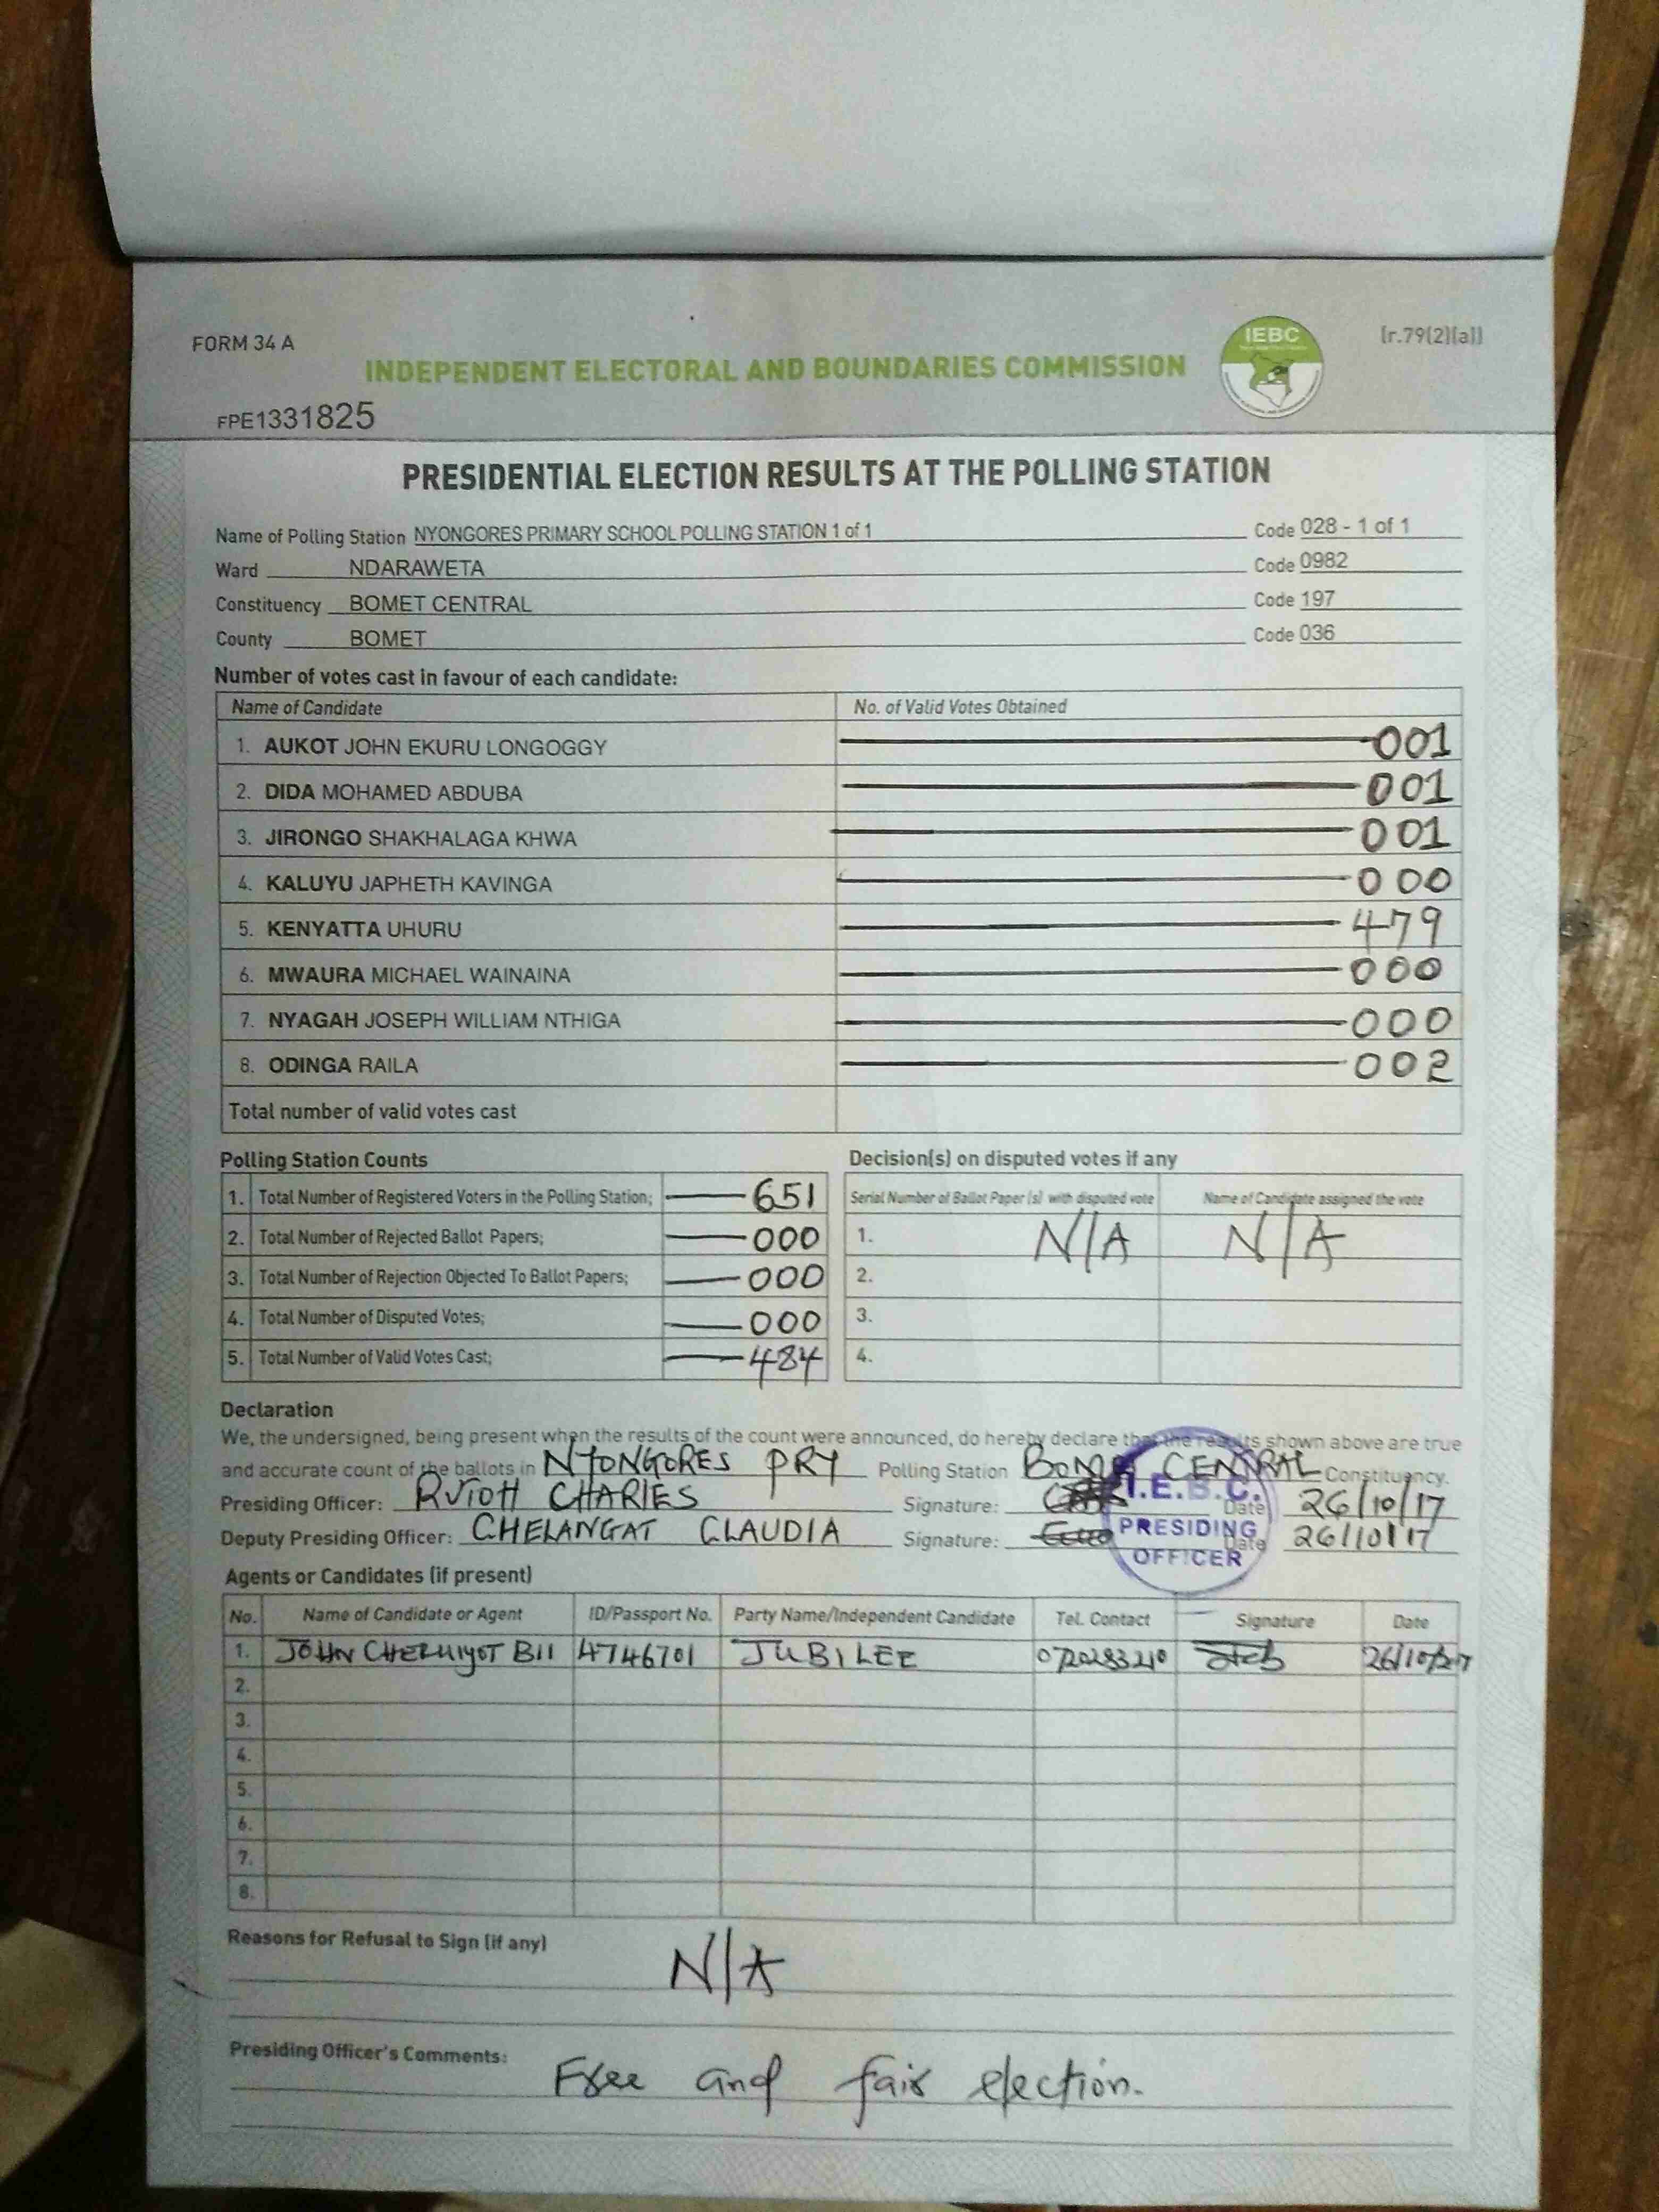 FORM 34 A
IEBC
[r.79(2)(a)]
INDEPENDENT ELECTORAL AND BOUNDARIES COMMISSION
FPE1331825
PRESIDENTIAL ELECTION RESULTS AT THE POLLING STATION
Name of Polling Station NYONGORES PRIMARY SCHOOL POLLING STATION 1 of 1 Code 028 - 1 of 1
Ward NDARAWETA Code 0982
Constituency BOMET CENTRAL Code 197
County BOMET Code 036
Number of votes cast in favour of each candidate:
Name of Candidate No. of Valid Votes Obtained
1. AUKOT JOHN EKURU LONGOGGY 001
2. DIDA MOHAMED ABDUBA 001
3. JIRONGO SHAKHALAGA KHWA 001
4. KALUYU JAPHETH KAVINGA 000
5. KENYATTA UHURU 479
6. MWAURA MICHAEL WAINAINA 000
7. NYAGAH JOSEPH WILLIAM NTHIGA 000
8. ODINGA RAILA 002
Total number of valid votes cast
Polling Station Counts Decision(s) on disputed votes if any
Serial Number of Ballot Paper (s) with disputed vote Name of Candidate assigned the vote
1. Total Number of Registered Voters in the Polling Station; 651
2. Total Number of Rejected Ballot Papers; 000 1. N/A N/A
3. Total Number of Rejection Objected To Ballot Papers; 000 2.
4. Total Number of Disputed Votes; 000 3.
5. Total Number of Valid Votes Cast; 484 4.
Declaration
We, the undersigned, being present when the results of the count were announced, do hereby declare that the results shown above are true
and accurate count of the ballots in NYONGORES PRY Polling Station BOMET CENTRAL Constituency.
Presiding Officer: RUTOH CHARLES Signature: Date 26/10/17
Deputy Presiding Officer: CHELANGAT CLAUDIA Signature: Date 26/10/17
I.E.B.C.
PRESIDING
OFFICER
Agents or Candidates (if present)
No. Name of Candidate or Agent ID/Passport No. Party Name/Independent Candidate Tel. Contact Signature Date
1. JOHN CHERUIYOT BII 4746701 JUBILEE 0720283210 26/10/2017
2.
3.
4.
5.
6.
7.
8.
Reasons for Refusal to Sign (if any)
N/A
Presiding Officer's Comments:
Free and fair election.